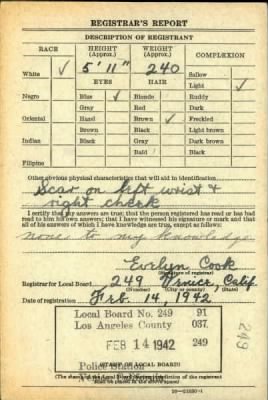 REGISTRAR'S REPORT
DESCRIPTION OF REGISTRANT
RACE HEIGHT (Approx.) WEIGHT (Approx.) COMPLEXION
White ✓ 5' 11" 240 Sallow
EYES HAIR Light ✓
Negro Blue ✓ Blonde Ruddy
Gray Red Dark
Oriental Hazel Brown ✓ Freckled
Brown Black Light brown
Indian Black Gray Dark brown
Bald Black
Filipino
Other obvious physical characteristics that will aid in identification
Scar on left wrist &
right cheek
I certify that my answers are true; that the person registered has read or has had
read to him his own answers; that I have witnessed his signature or mark and that
all of his answers of which I have knowledge are true, except as follows:
none to my knowledge
Evelyn Cook
(Signature of registrar)
Registrar for Local Board 249 Venice, Calif.
(Number) (City or county)
Date of registration Feb. 14, 1942
Local Board No. 249 91
Los Angeles County 037
FEB 14 1942 249
249
Police Station
(STAMP OF LOCAL BOARD)